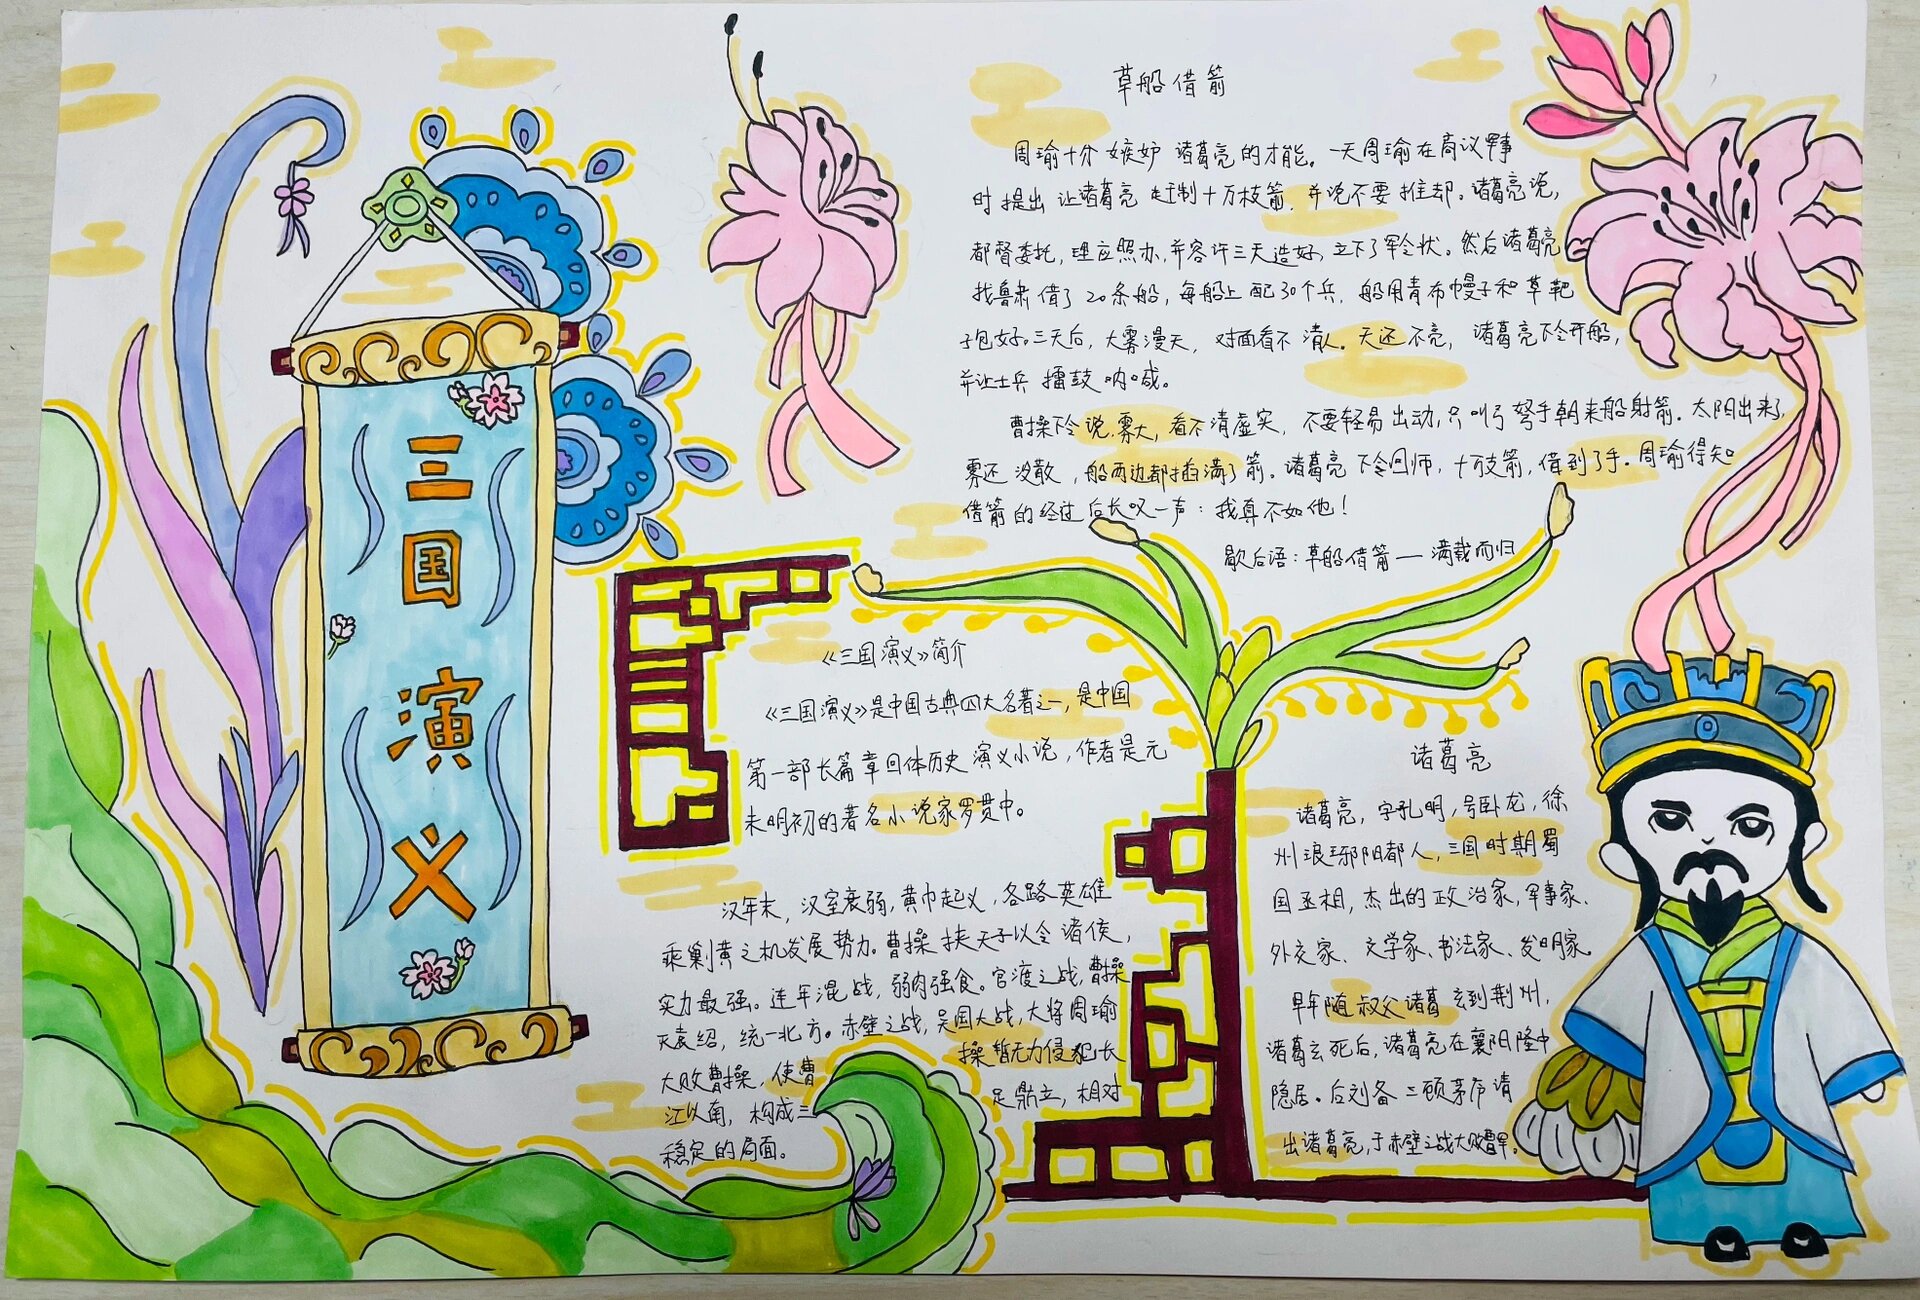 三国演义
草船借箭
周瑜十分嫉妒诸葛亮的才能。一天周瑜在商议军事
时提出让诸葛亮赶制十万枝箭,并说不要推却。诸葛亮说,
都督委托,理应照办,并容许三天造好,立下了军令状。然后诸葛亮
找鲁肃借了20条船,每船上配30个兵,船用青布幔子和草靶
子包好。三天后,大雾漫天,对面看不清人。天还不亮,诸葛亮下令开船,
并让士兵擂鼓呐喊。
曹操下令说,雾大,看不清虚实,不要轻易出动,只叫弓弩手朝来船射箭。太阳出来了,
雾还没散,船两边都插满了箭。诸葛亮下令回师,十万支箭,借到了手。周瑜得知
借箭的经过后长叹一声:我真不如他!
歇后语:草船借箭—满载而归
《三国演义》简介
《三国演义》是中国古典四大名著之一,是中国
第一部长篇章回体历史演义小说,作者是元
末明初的著名小说家罗贯中。
汉年末,汉室衰弱,黄巾起义,各路英雄
乘剿黄之机发展势力。曹操挟天子以令诸侯,
实力最强。连年混战,弱肉强食。官渡之战,曹操
灭袁绍,统一北方。赤壁之战,吴国大战,大将周瑜
大败曹操,使曹操暂无力侵犯长
江以南,构成三足鼎立,相对
稳定的局面。
诸葛亮
诸葛亮,字孔明,号卧龙,徐
州琅琊阳都人,三国时期蜀
国丞相,杰出的政治家,军事家、
外交家、文学家、书法家、发明家。
早年随叔父诸葛玄到荆州,
诸葛玄死后,诸葛亮在襄阳隆中
隐居。后刘备三顾茅庐请
出诸葛亮,于赤壁之战大败曹军。